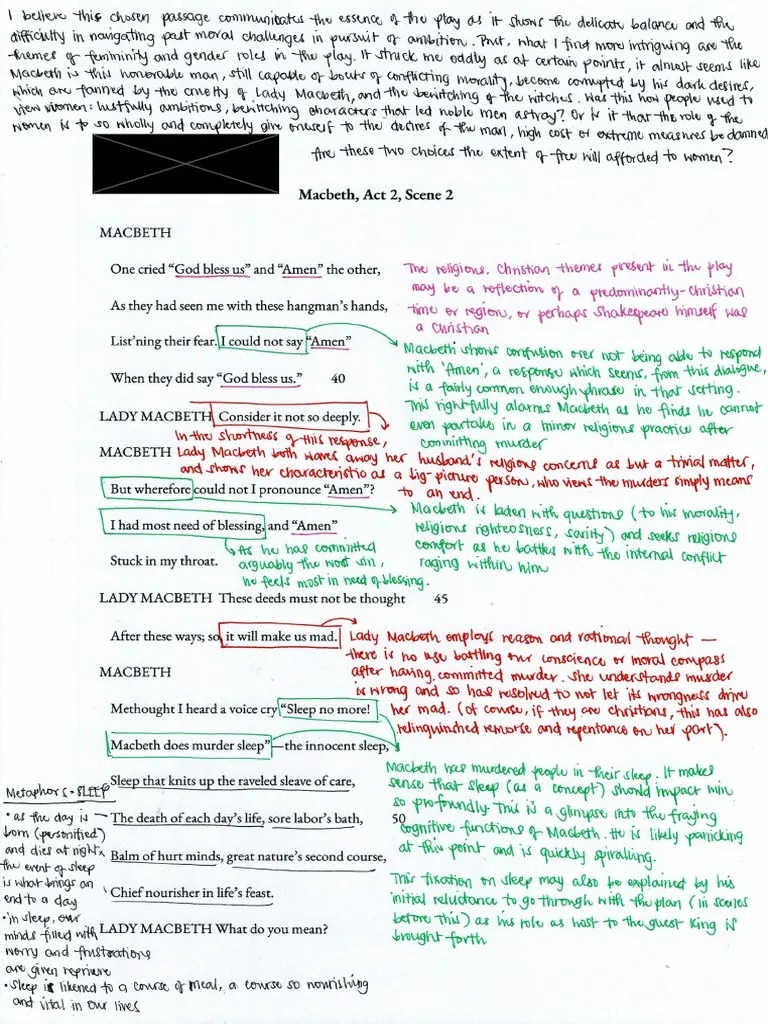 I believe this chosen passage communicates the essence of the play as it shows the delicate balance and the
difficulty in navigating past moral challenges in pursuit of ambition. But, what I find more intriguing are the
themes of femininity and gender roles in the play. It struck me oddly as at certain points, it almost seems like
Macbeth is this honorable man, still capable of bouts of conflicting morality, become corrupted by his dark desires,
which are fanned by the cruelty of Lady Macbeth, and the bewitching of the witches. Was this how people used to
view women: lustfully ambitions, bewitching characters that led noble men astray? Or is it that the role of the
women is to so wholly and completely give oneself to the desires of the man, high cost or extreme measures be damned
Are these two choices the extent of free will afforded to women?
Macbeth, Act 2, Scene 2
MACBETH
One cried “God bless us” and “Amen” the other,
As they had seen me with these hangman’s hands,
List’ning their fear. I could not say “Amen”
When they did say “God bless us.” 40
The religious, Christian themes present in the play
may be a reflection of a predominantly-christian
time or region, or perhaps Shakespeare himself was
a Christian
Macbeth shows confusion over not being able to respond
with 'Amen', a response which seems, from this dialogue,
is a fairly common enough phrase in that setting.
This rightfully alarms Macbeth as he finds he cannot
even partake in a minor religious practice after
committing murder
LADY MACBETH Consider it not so deeply.
In the shortness of this response,
Lady Macbeth both waves away her husband's religious concerns as but a trivial matter,
and shows her characteristic as a big-picture person, who views the murders simply means
to an end.
MACBETH
But wherefore could not I pronounce “Amen”?
I had most need of blessing, and “Amen”
Stuck in my throat.
Macbeth is laden with questions (to his morality,
religious righteousness, sanity) and seeks religious
comfort as he battles with the internal conflict
raging within him
As he has committed
arguably the worst sin,
he feels most in need of blessing.
LADY MACBETH These deeds must not be thought 45
After these ways; so, it will make us mad.
Lady Macbeth employs reason and rational thought —
there is no use battling our conscience or moral compass
after having committed murder. She understands murder
is wrong and so has resolved to not let its wrongness drive
her mad. (Of course, if they are christians, this has also
relinquished remorse and repentance on her part).
MACBETH
Methought I heard a voice cry “Sleep no more!
Macbeth does murder sleep”—the innocent sleep,
Sleep that knits up the raveled sleave of care,
The death of each day’s life, sore labor’s bath, 50
Balm of hurt minds, great nature’s second course,
Chief nourisher in life’s feast.
Macbeth has murdered people in their sleep. It makes
sense that sleep (as a concept) should impact him
so profoundly. This is a glimpse into the fraying
cognitive functions of Macbeth. He is likely panicking
at this point and is quickly spiralling.
This fixation on sleep may also be explained by his
initial reluctance to go through with the plan (in scenes
before this) as his role as host to the guest King is
brought forth
Metaphors - SLEEP
• as the day is
born (personified)
and dies at night,
the event of sleep
is what brings an
end to a day
• in sleep, our
minds filled with
worry and frustrations
are given reprieve
• Sleep is likened to a course of meal, a course so nourishing
and vital in our lives
LADY MACBETH What do you mean?